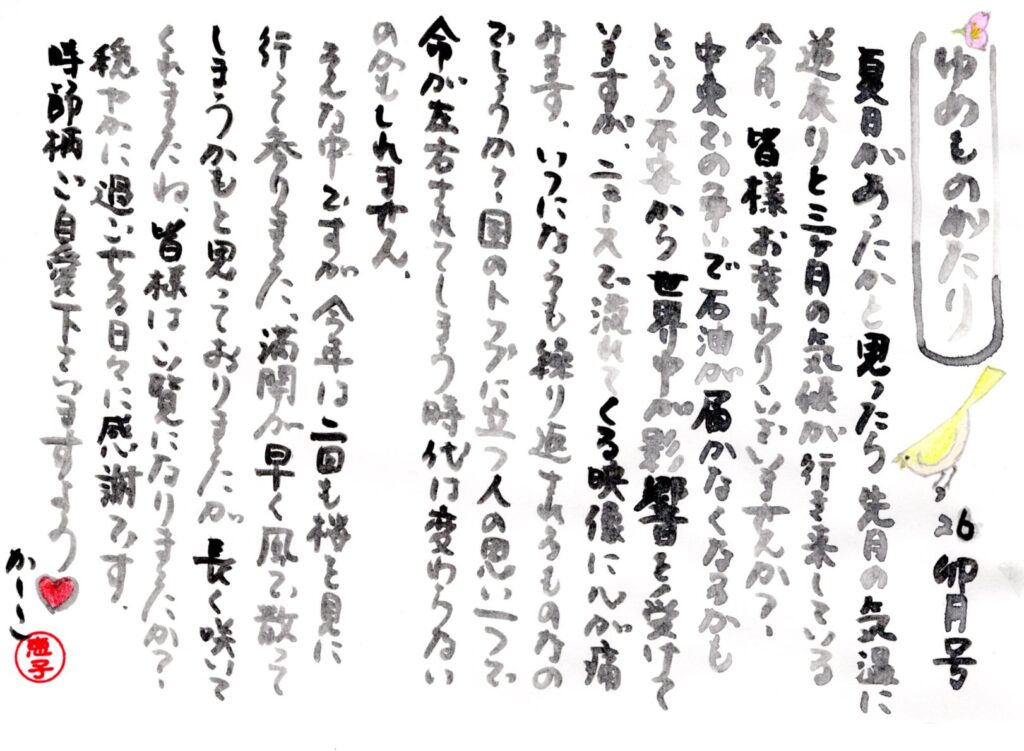 ゆめものがたり
'26 卯月号
夏日があったかと思ったら先月の気温に
逆戻りと三ヶ月の気候が行き来している
今月、皆様お変わりございませんか?
中東での争いで石油が届かなくなるかも
という不安から世界中が影響を受けて
いますが、ニュースで流れてくる映像に心が痛
みます。いつになっても繰り返されるものなの
でしょうか?国のトップに立つ人の思い一つで
命が左右されてしまう時代は変わらない
のかもしれません。
そんな中ですが今年は二回も桜を見に
行って参りました。満開が早く風で散って
しまうかもと思っておりましたが長く咲いて
くれましたね。皆様はご覧になりましたか?
穏やかに過ごせる日々に感謝です。
時節柄ご自愛下さいますよう
かーこ
恵子